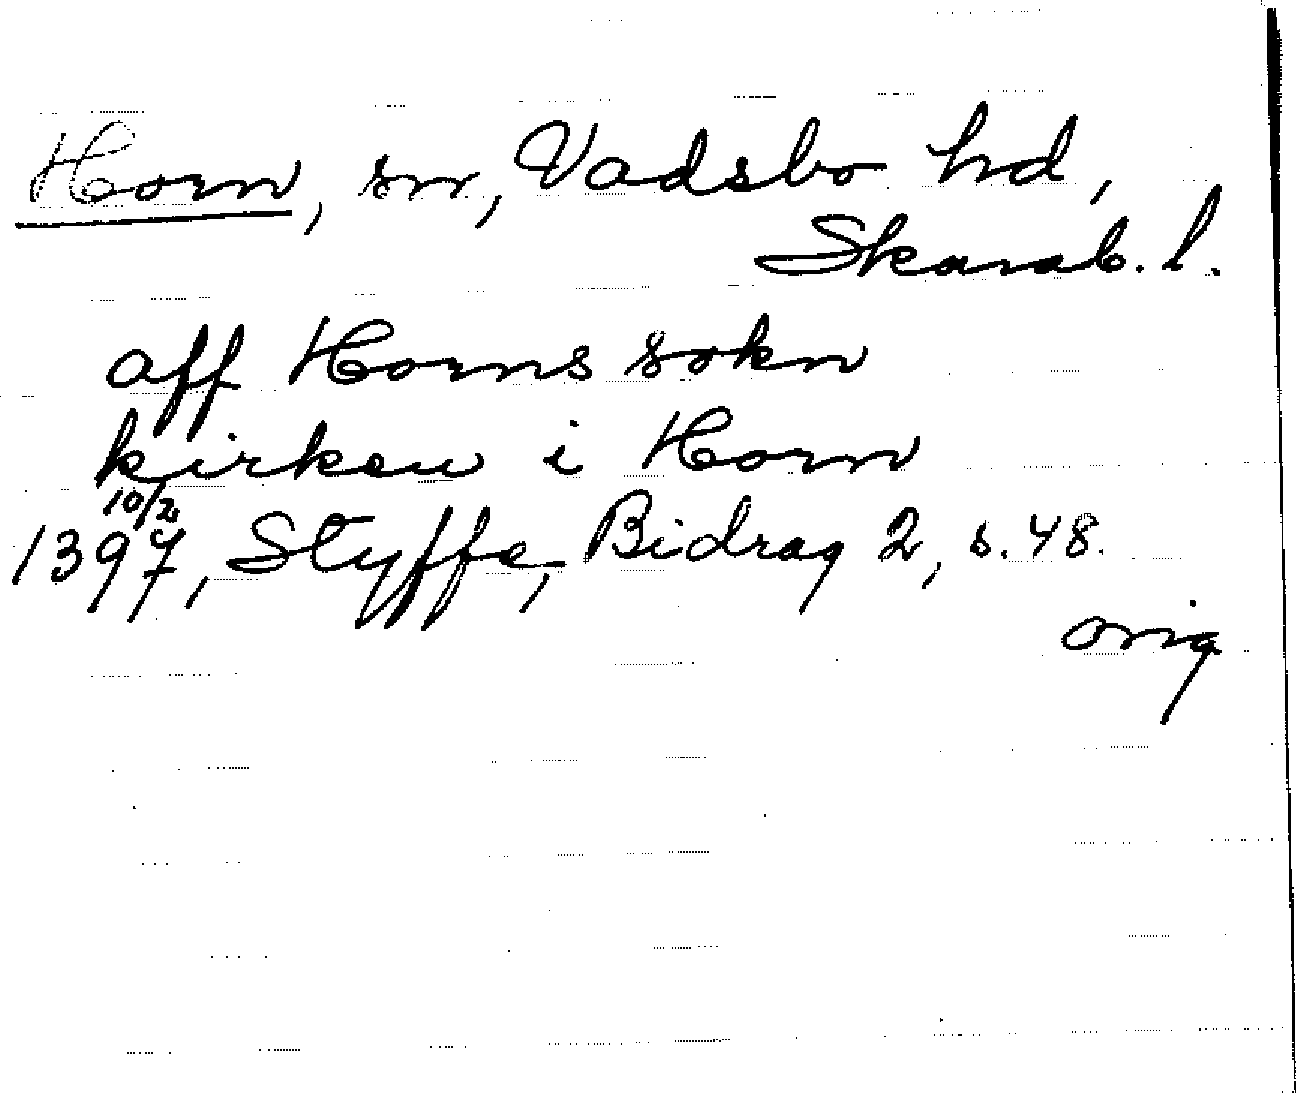 Horn, sn, Vadsbo hd,
Skarab. l.
aff Horns sokn
kirken i Horn
10/2
1397, Styffe, Bidrag 2, s. 48.
orig